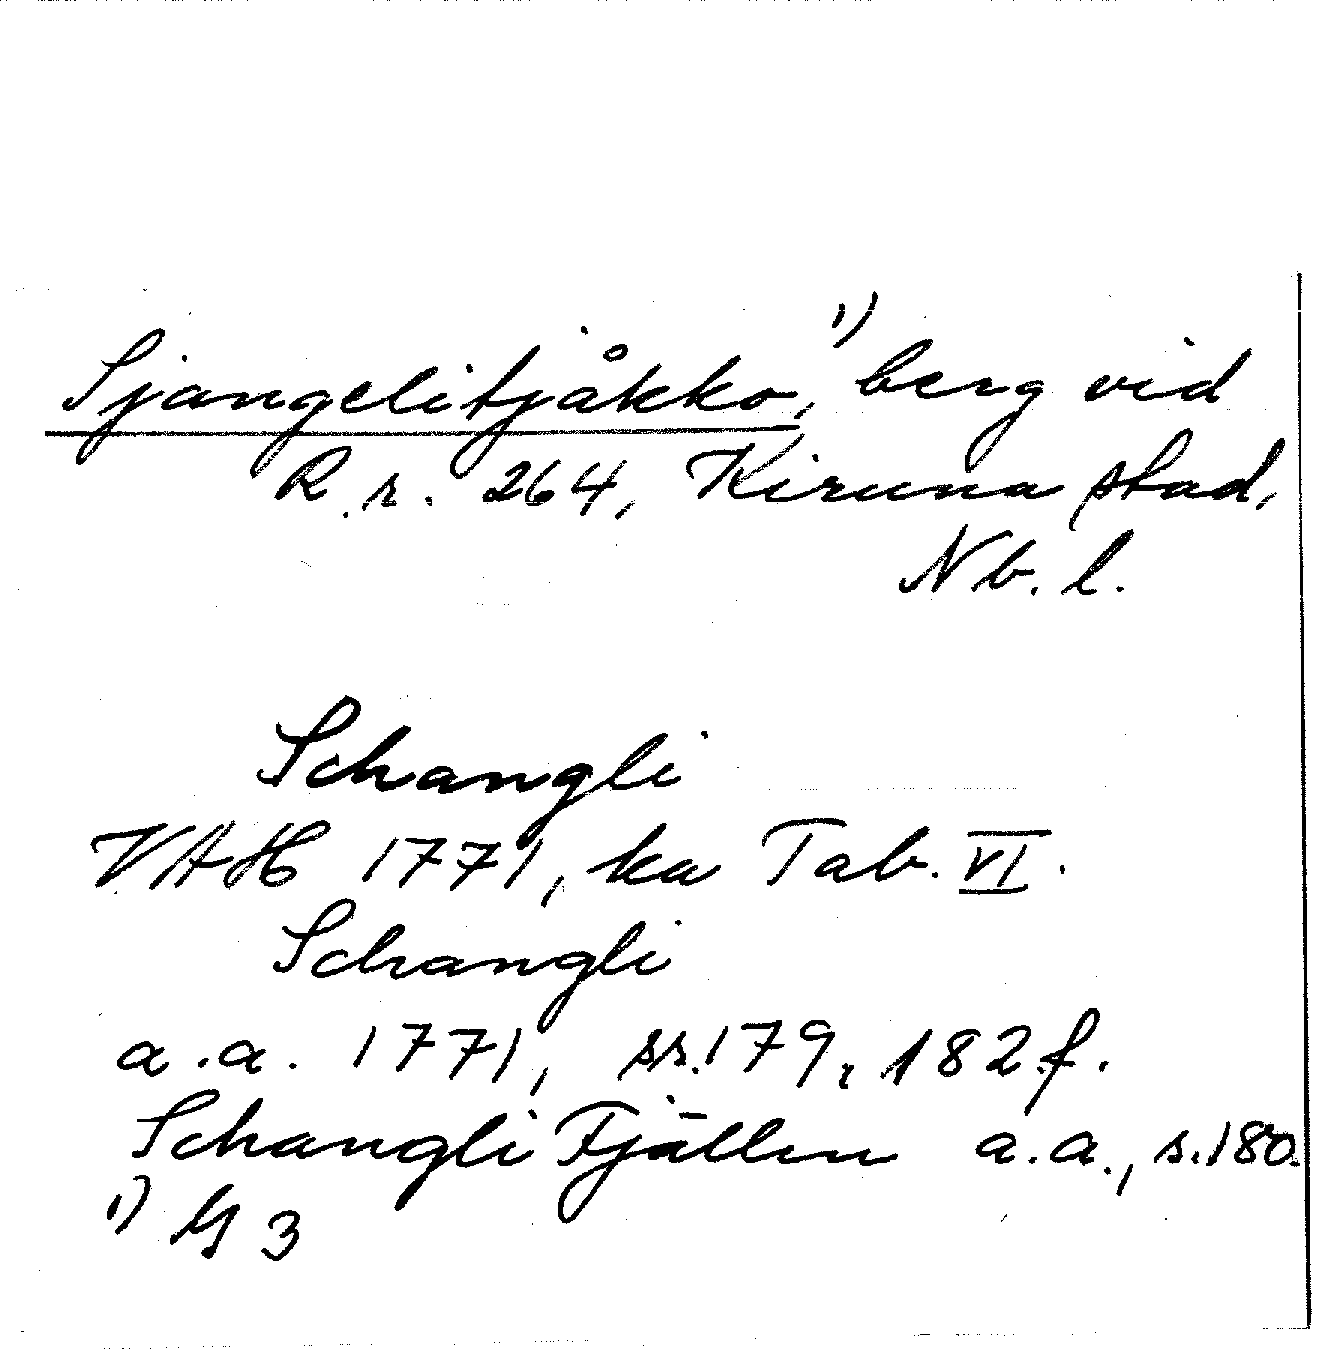 Sjangelitjåkko,¹⁾ berg vid
R.r. 264, Kiruna stad,
Nb. l.
Schangli
VAH 1771, ka Tab. VI.
Schangli
a.a. 1771, ss. 179, 182 f.
Schangli Fjällen a.a., s. 180.
¹⁾ G 3